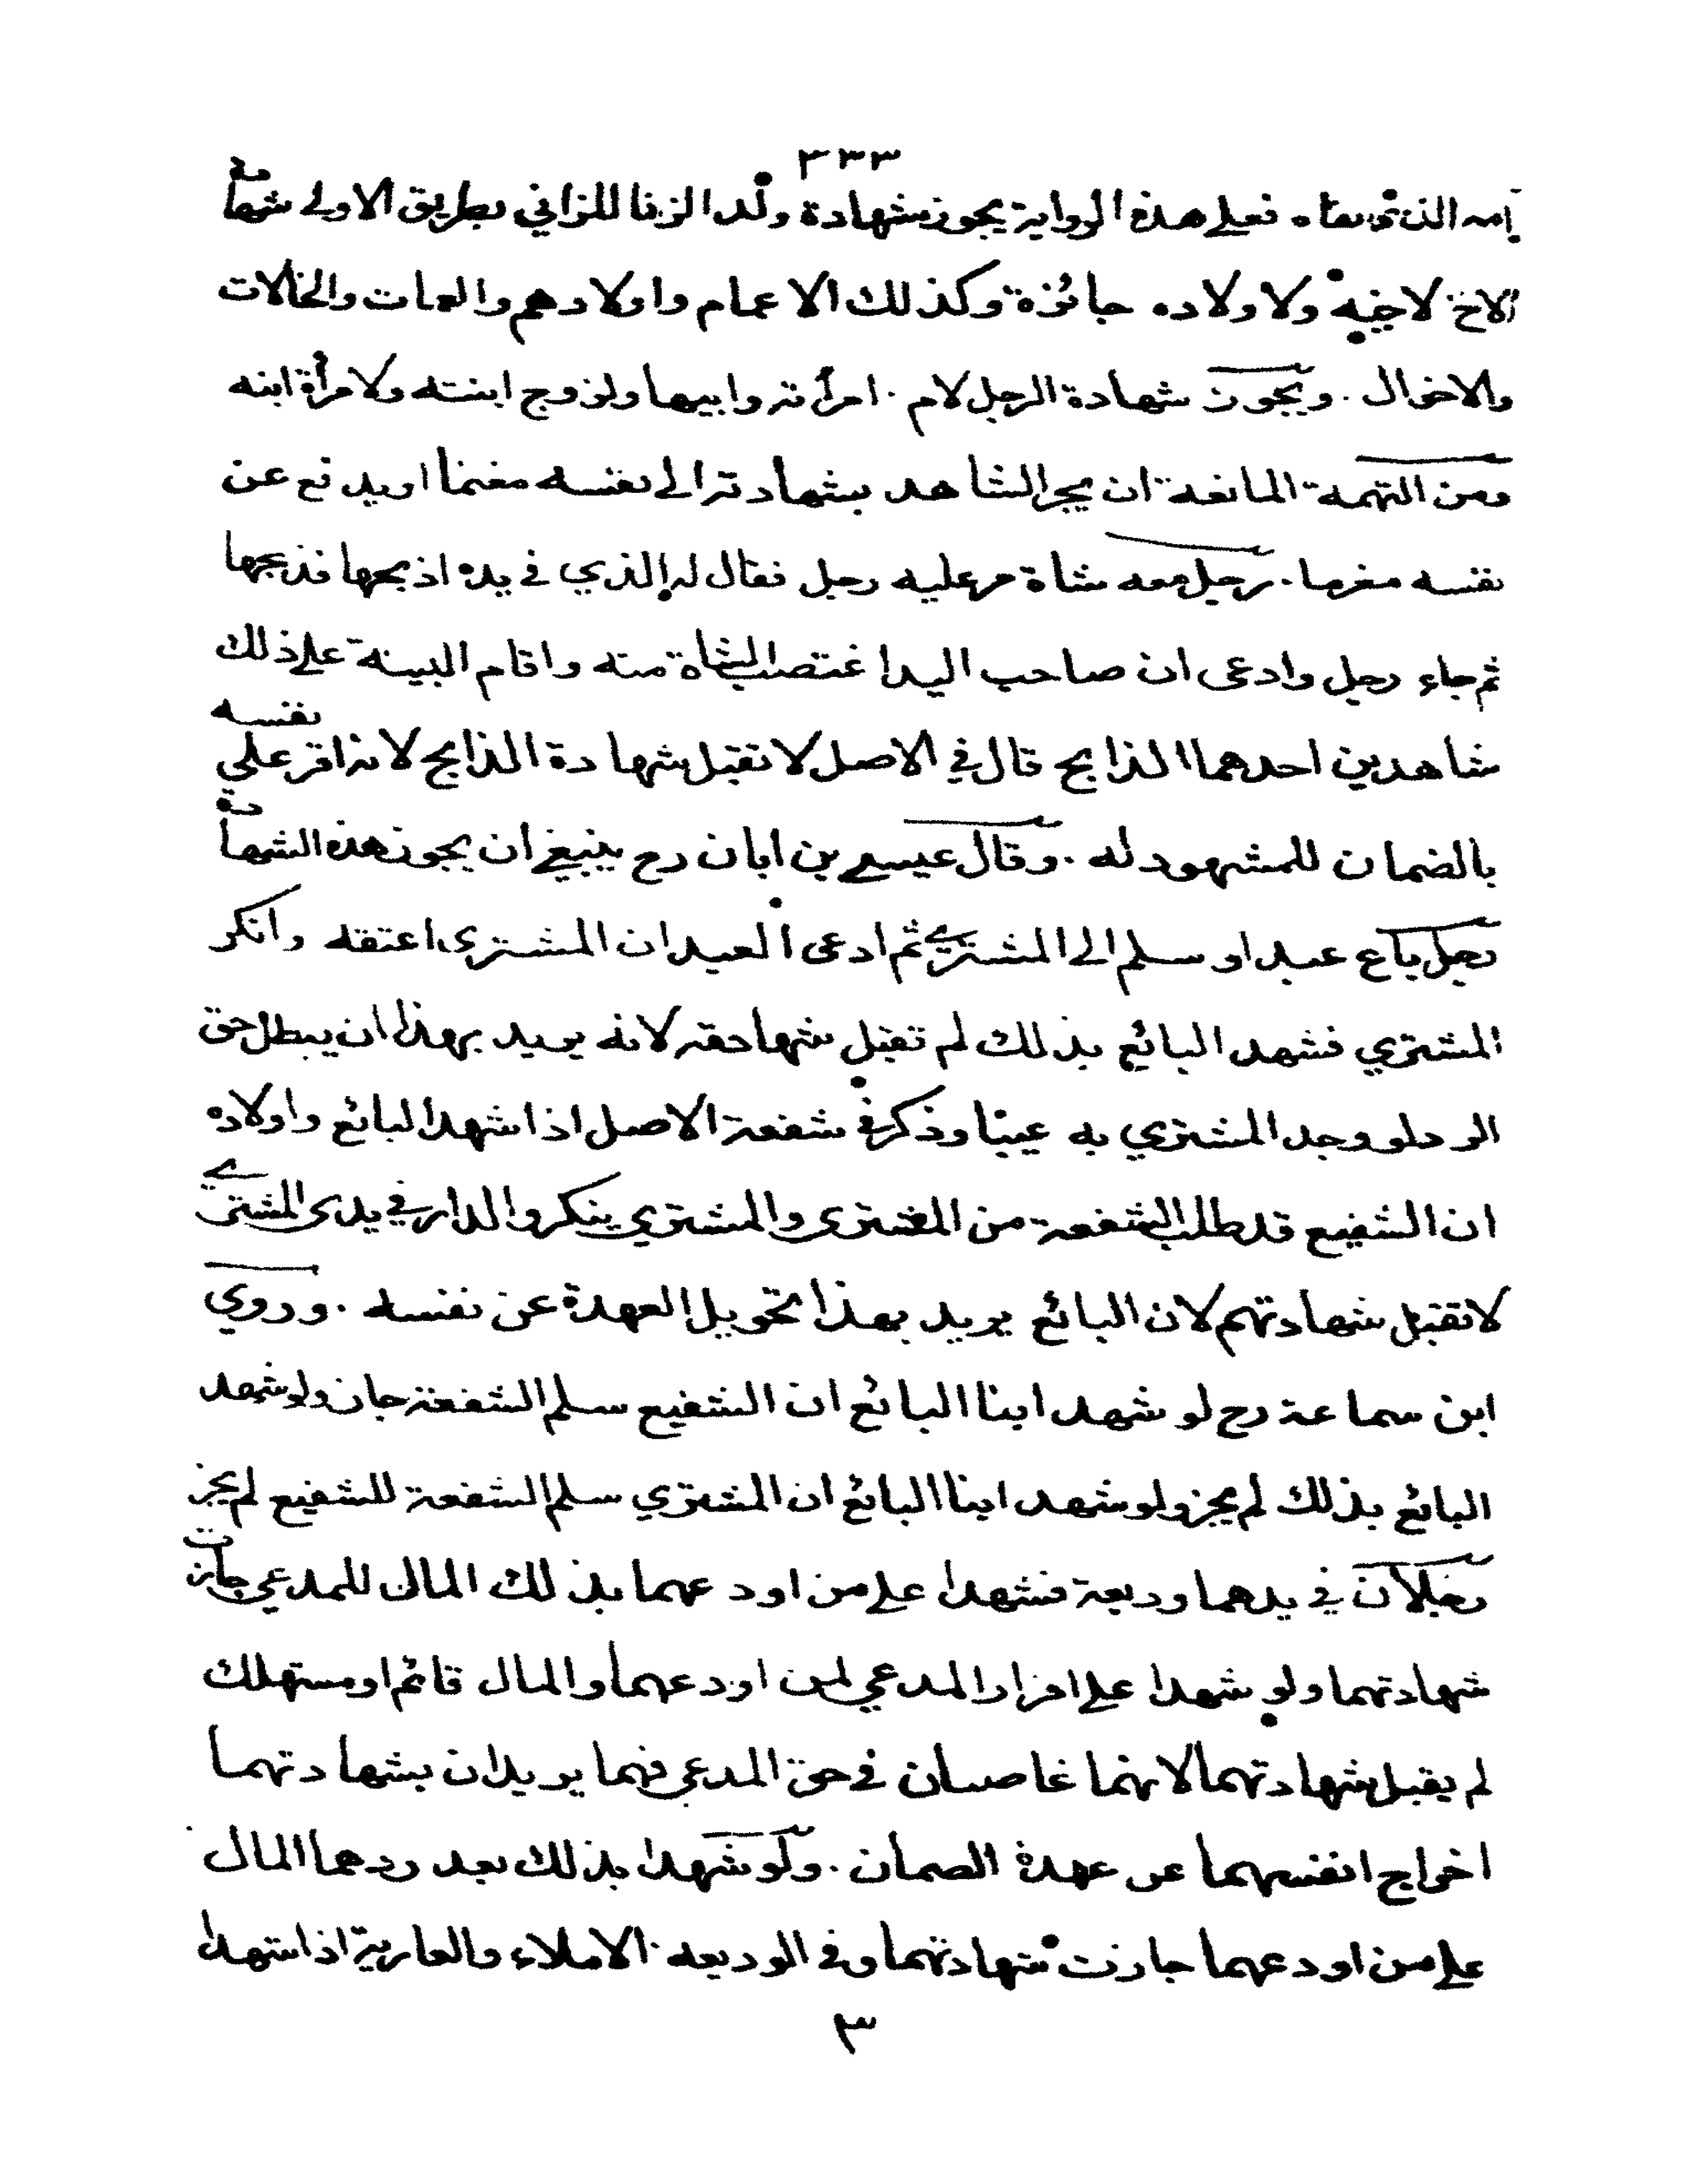 ٣٣٣
فعلى هذه الرواية يجوز شهادة ولد الزنا للزاني بطريق الاولى شهادة
الاخ لاخيه ولا ولاده جائزة وكذلك الاعمام واولادهم والعمات والخالات
والاخوال . ويجوز شهادة الرجل لام امرأته وابيها ولزوج ابنته ولامرأة ابنه
ومن التهمة المانعة ان يجر الشاهد بشهادته الى نفسه مغنما او يدفع عن
نفسه مغرما . رجل معه شاة مر عليه رجل فقال له الذي في يده اذبحها فذبحها
ثم جاء رجل وادعى ان صاحب اليد اغتصب الشاة منه واقام البينة على ذلك
شاهدين احدهما الذابح قال في الاصل لا تقبل شهادة الذابح لانه اقر على نفسه
بالضمان للمشهود له . وقال عيسى بن ابان رح ينبغي ان يجوز هذه الشهادة
رجل باع عبدا وسلم الى المشتري ثم ادعى العبد ان المشتري اعتقه وانكر
المشتري فشهد البائع بذلك لم تقبل شهادته لانه يريد بهذا ان يبطل حق
الرد لو وجد المشتري به عيبا وذكر في شفعة الاصل اذا شهد البائع واولاده
ان الشفيع قد طلب الشفعة من المشترى والمشتري ينكر والدار في يدى المشتري
لا تقبل شهادتهم لان البائع يريد بهذا تحويل العهدة عن نفسه . وروي
ابن سماعة رح لو شهد ابنا البائع ان الشفيع سلم الشفعة جاز ولو شهد
البائع بذلك لم يجز ولو شهد ابنا البائع ان المشتري سلم الشفعة للشفيع لم يجز
رجلان في يدهما وديعة فشهدا على من اودعهما بذلك المال للمدعي جازت
شهادتهما ولو شهدا على اقرار المدعي لمن اودعهما والمال قائم او مستهلك
لم يقبل شهادتهما لانهما غاصبان في حق المدعي فهما يريدان بشهادتهما
اخراج انفسهما عن عهدة الضمان . ولو شهدا بذلك بعد ردهما المال
على من اودعهما جازت شهادتهما وفي الوديعه الاملاء والعارية اذا شهدا
٣